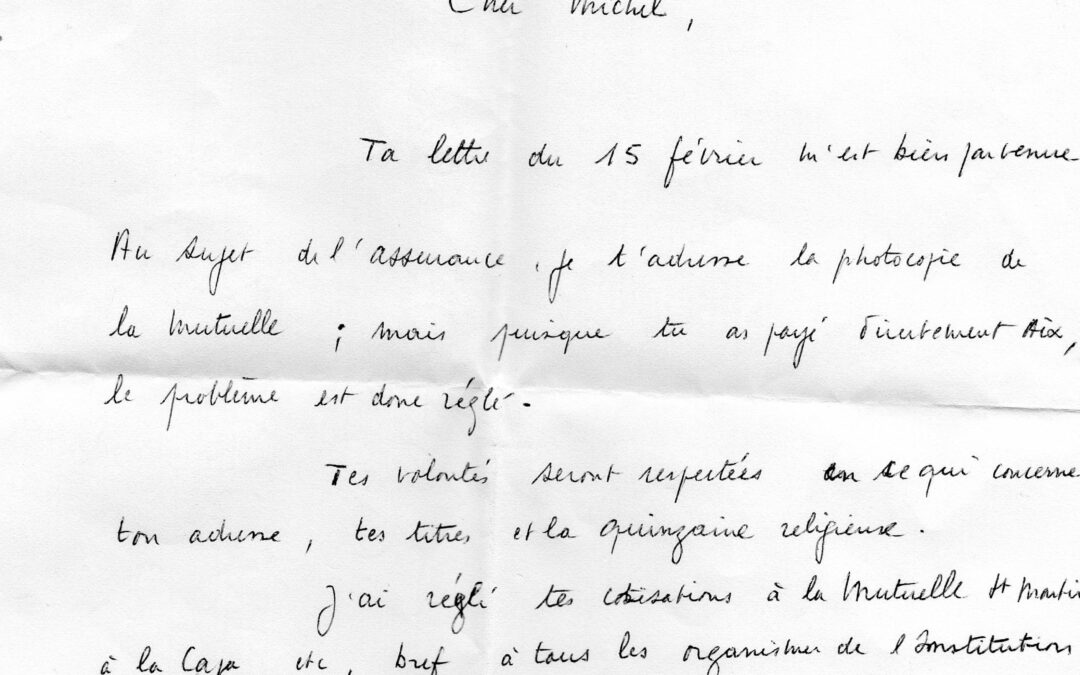 Cher Michel,
Ta lettre du 15 février m'est bien parvenue
Au sujet de l'assurance, je t'adresse la photocopie de
la Mutuelle ; mais puisque tu as payé directement Aix,
le problème est donc réglé.
Tes volontés seront respectées en ce qui concerne
ton adresse, tes titres et la quinzaine religieuse.
J'ai réglé tes cotisations à la Mutuelle St Martin
à la Capa etc, bref à tous les organismes de l'Institution